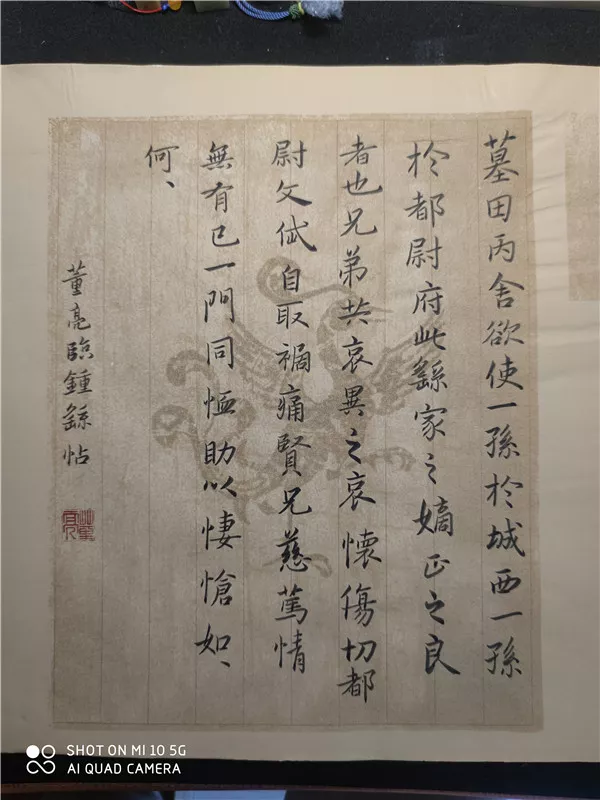 墓田丙舍欲使一孫於城西一孫
於都尉府此繇家之嫡正之良
者也兄弟共哀異之哀懷傷切都
尉文岱自取禍痛賢兄慈篤情
無有已一門同恤助以悽愴如、
何、
董亮臨鍾繇帖
董亮
SHOT ON MI 10 5G
AI QUAD CAMERA